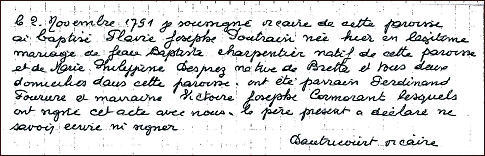 Le 2. Novembre 1791 je soussigné vicaire de cette paroisse
ai baptisé Flavie Josephe Poutrain née hier en legitime
mariage de Jean Baptiste charpentier natif de cette paroisse
et de Marie Philippine Desprez native de Brette et tous deux
domiciliés dans cette paroisse. ont été parrain Ferdinand
Fourure et marraine Victoire Josephe Cormorant lesquels
ont signé cet acte avec nous. le père present a déclaré ne
savoir ecrire ni signer
Dautricourt vicaire